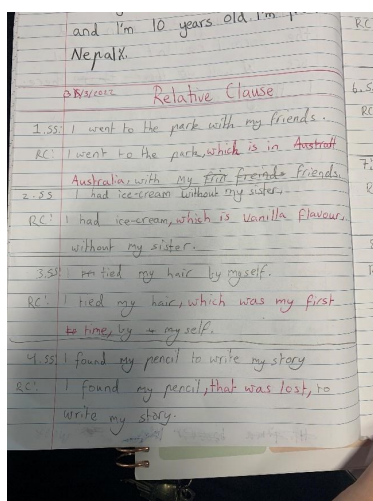 and I'm 10 years old. I'm
Nepal
Relative Clause
1.SS: I went to the park with my friends.
RC: I went to the park, which is in Austrail
Australia, with my friends.
2.SS I had ice-cream without my sister.
RC: I had ice-cream, which is vanilla flavour,
without my sister.
3.SS: I tied my hair by myself.
RC: I tied my hair, which was my first
time, by my self.
4.SS I found my pencil to write my story
RC: I found my pencil, that was lost, to
write my story.
RC
6.S
RC
7.